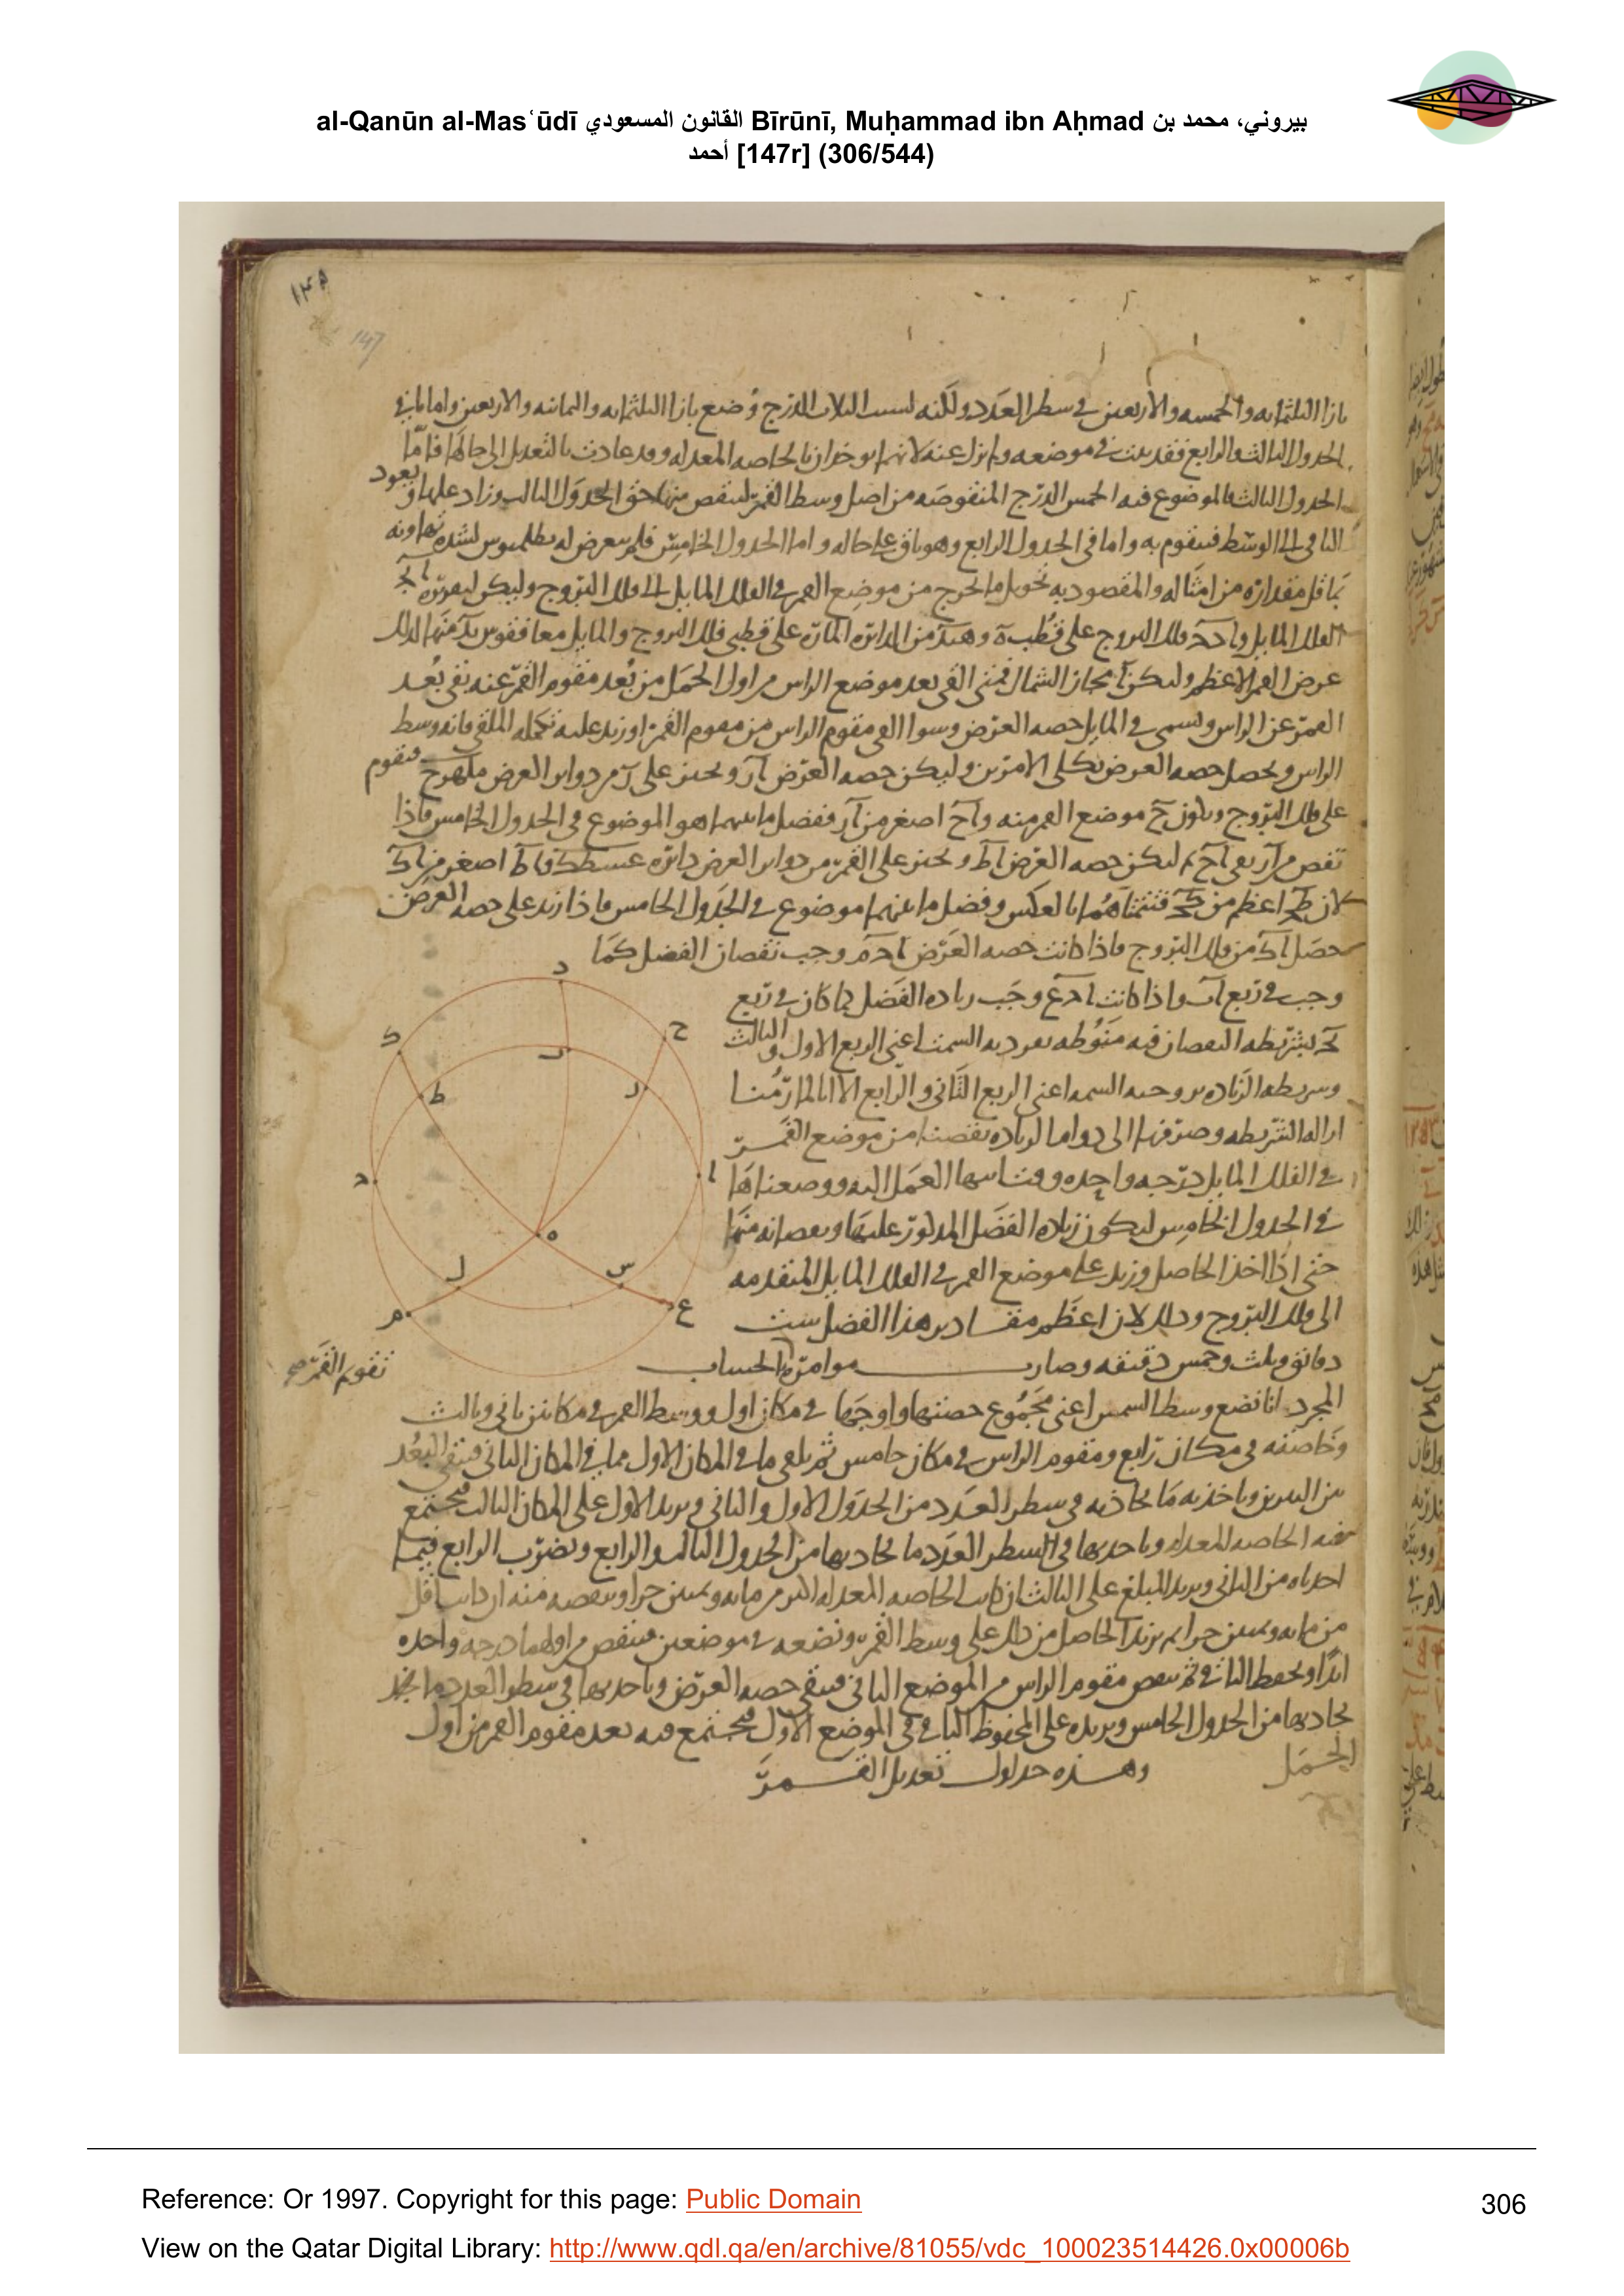 al-Qanūn al-Masʿūdī القانون المسعودي Bīrūnī, Muḥammad ibn Aḥmad بيروني، محمد بن
أحمد [147r] (306/544)
١٤٥
147
بازا الثلثمايه والخمسه والاربعين في سطر العدد ولكنه لسبب الثلاث الدرج وُضع بازا الثلثمايه والثمانيه والاربعين واما ما في
الجدول الثالث والرابع فقد ثبت في موضعه ولم يزل عنه لانهما يوخذان بالخاصه المعدله وقد عادت بالتعديل الى حالها فامّا
الجدول الثالث فالموضوع فيه الخمس الدرج المنقوصه من اصل وسط القمر لينقص منها حق الجدول الثالث وزاد عليها و يعود
الباقي الى الوسط فيتقوم به واما في الجدول الرابع وهو باق على حاله واما الجدول الخامس فلم يتعرض له بطلميوس لشده تهاونه
بما قل مقداره من امثاله والمقصود به تحويل ما يخرج من موضع القمر في الفلك المايل الى فلك البروج وليكن لمعرفته
الفلك المايل و فلك البروج على قُطب ه و من الدائره المارّه على قطبي فلك البروج والمايل معا فقوس منها لذلك
عرض القمر الاعظم وليكن ا مجاز الشمال فمتى القي بعد موضع الراس من اول الحمل من بُعد مقوم القمر عنه بقي بُعد
القمر عن الراس ويسمى في المايل حصه العرض وسوا القي مقوم الراس من مقوم القمر او زيد عليه تكمله الملقى فانه وسط
الراس ويحصل حصه العرض بكلي الامرين وليكن حصه العرض ار ونجيز على ر من دواير العرض فيتقوم
على فلك البروج ويكون ح موضع القمر منه و اح اصغر من ار ففضل ما بينهما هو الموضوع في الجدول الخامس فاذا
نقص من ار بقي اح ثم ليكن حصه العرض اط ونجيز على القمر من دواير العرض دائره فاط اصغر من اك
لان اعظم من فتتمتاهما بالعكس وفضل ما بينهما موضوع في الجدول الخامس فاذا زيد على حصه العرض
حصل اك من فلك البروج فاذا كانت حصه العرض وجب نقصان الفضل كما
وجب في ربع اب واذا كانت وجب زياده الفضل كما كان في ربع
فشريطه النقصان فيه منوطه بفرديه السمت اعني الربع الاول والثالث
وشريطه الزياده بزوجيه السمت اعني الربع الثاني والرابع الا انا لما رُمنا
ازاله الشريطه وصرفها الى دوام الزياده نقصنا من موضع القمر
في الفلك المايل درجه واحده العمل اليه ووضعناها
في الجدول الخامس ليكون زياده الفضل المذكور عليها ونقصانه منها
حتى اذا اخذ الحاصل وزيد على موضع القمر في الفلك المايل المتقدمه
الى فلك البروج وذلك لان اعظم مقادير هذا الفضل ست
دقائق وثلث وخمس دقيقه وصارت موامرة الحساب
تقوم القمر صح
المجرد انا نضع وسط الشمس اعني مجموع حصتها واوجها في مكان اول ووسط القمر في مكانين ثاني وثالث
وخاصته في مكان رابع ومقوم الراس في مكان خامس ثم نلقي ما في المكان الاول مما في المكان الثاني فيبقى البُعد
بين النيرين وناخذ به ما يحاذيه في سطر العدد من الجدول الاول والثاني ونزيد الاول على المكان الثالث فيجتمع
فيه الخاصه المعدله وناخذ بها في السطر العدد ما يحاذيها من الجدول الثالث والرابع ونضرب الرابع فيما
اخذناه من الثاني ونزيد المبلغ على الثالث ان كانت الخاصه المعدله اكثر من مايه وثمنين جزا وننقصه منه ان كانت اقل
من مايه وثمنين جزا ثم نزيد الحاصل من ذلك على وسط القمر ونضعه في موضعين فننقص من اولهما درجه واحده
ابدًا ونحفظ الباقي ثم ننقص مقوم الراس من الموضع الثاني فيبقى حصه العرض وناخذ بها في سطر العدد ما
يحاذيها من الجدول الخامس ونزيده على المحفوظ الباقي في الموضع الاول فيجتمع فيه بعد مقوم القمر من اول
الحمل وهذه جداول تعديل القمر
د
ح
ك
ب
ط
ر
ا
ج
ه
ل
س
م
ع
Reference: Or 1997. Copyright for this page: Public Domain
306
View on the Qatar Digital Library: http://www.qdl.qa/en/archive/81055/vdc_100023514426.0x00006b